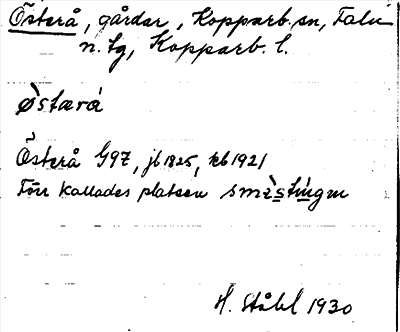 Österå, gårdar, Kopparb. sn, Falu
n. tg, Kopparb. l.
østærá
Österå G97, jb 1825, kb 1921
Förr kallades platsen smìstíŋgən
H. Ståhl 1930